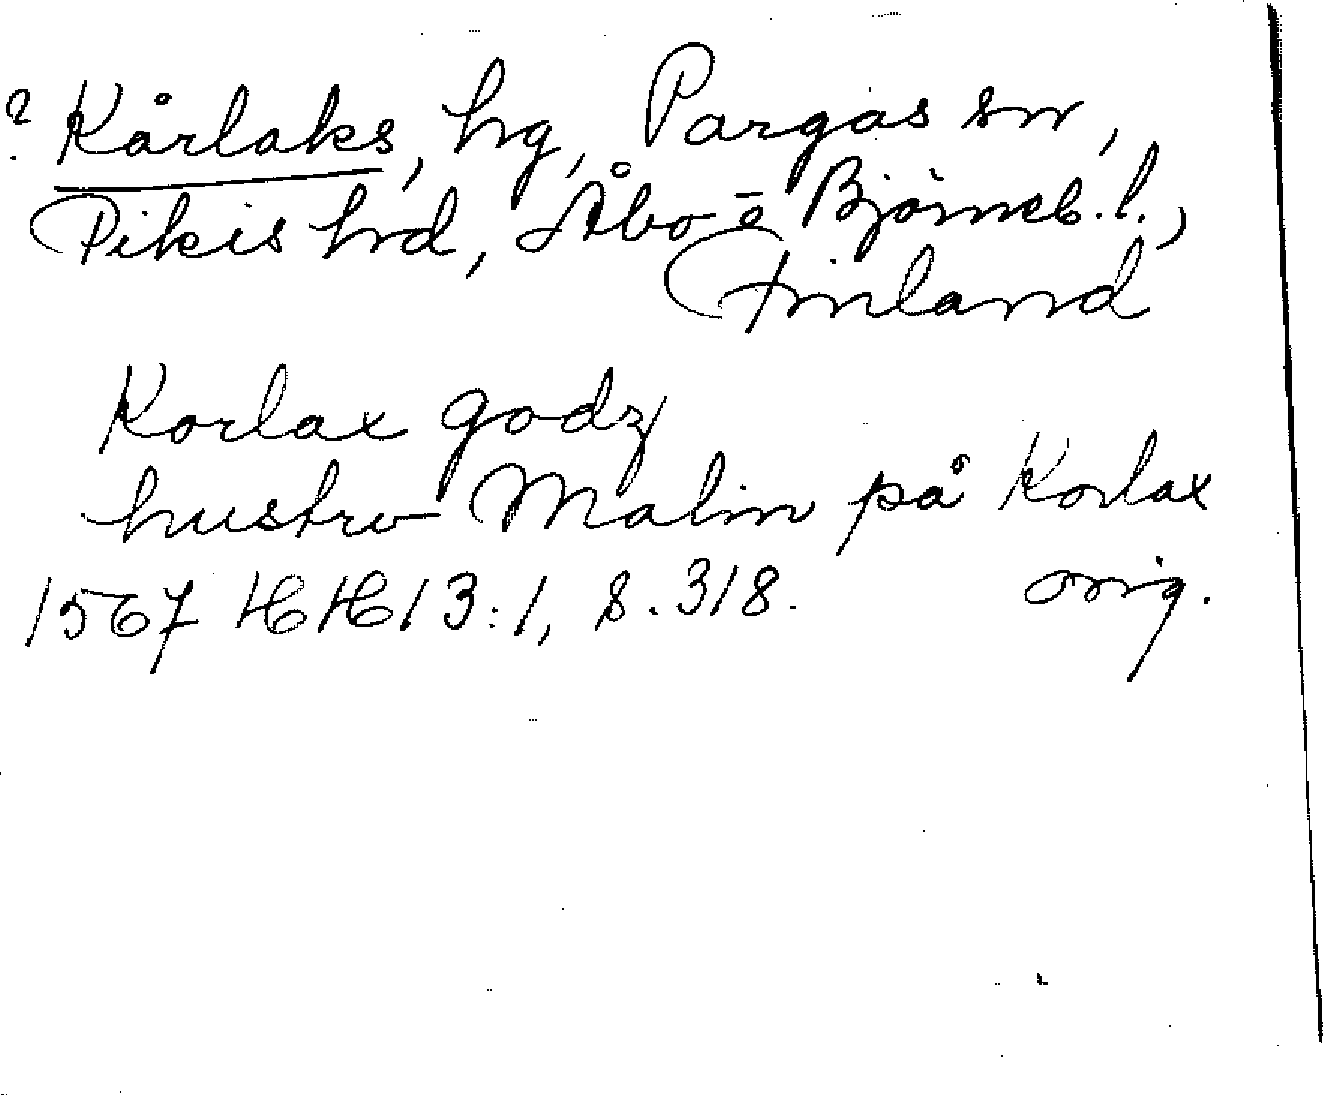 ? Kårlaks, hg, Pargas sn,
Pikis hrd, Åbo o Björneb. l.,
Finland
Korlax godz
hustrv Malin på Korlax
1567 HH 13:1, s. 318. orig.